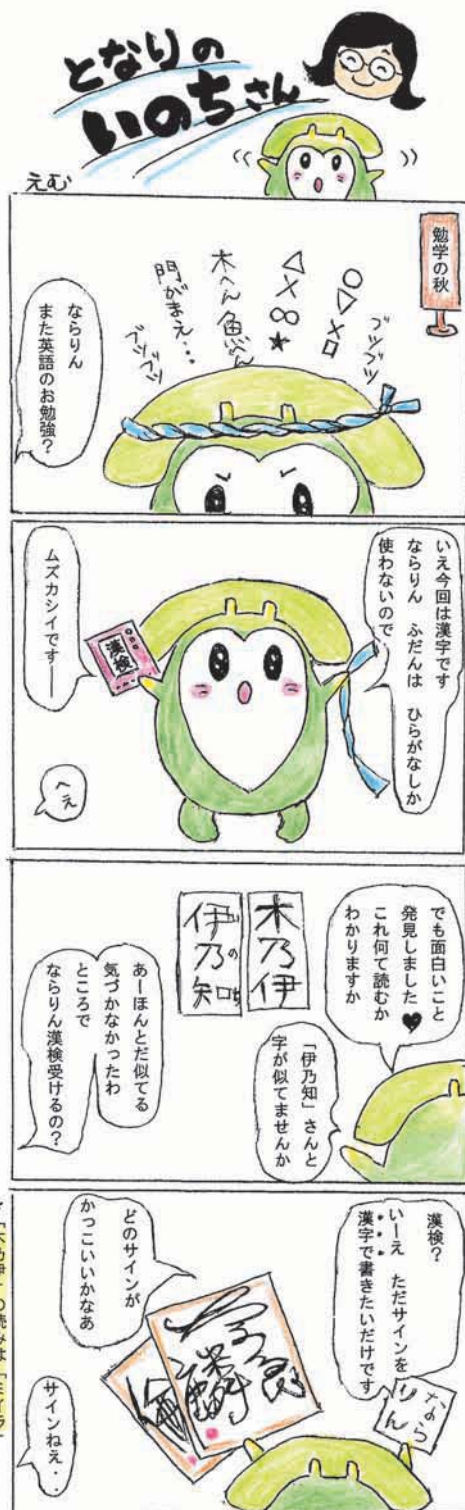 となりの
いのちさん
えむ
勉学の秋
ブツブツ
○▽×□
△×∞★
木へん魚へん
門がまえ…
ブツブツ
ならりん
また英語のお勉強？
いえ今回は漢字です
ならりん ふだんは ひらがなしか
使わないので
漢検
ムズカシイですー
へえ
でも面白いこと
発見しました♥
これ何て読むか
わかりますか
木乃伊
伊乃知
いのち
「伊乃知」さんと
字が似てませんか
あーほんとだ似てる
気づかなかったわ
ところで
ならりん漢検受けるの？
漢検？
いーえ ただサインを
漢字で書きたいだけです
なら
りん
どのサインが
かっこいいかなあ
サインねえ・・
「木乃伊」の読みは「ミイラ」